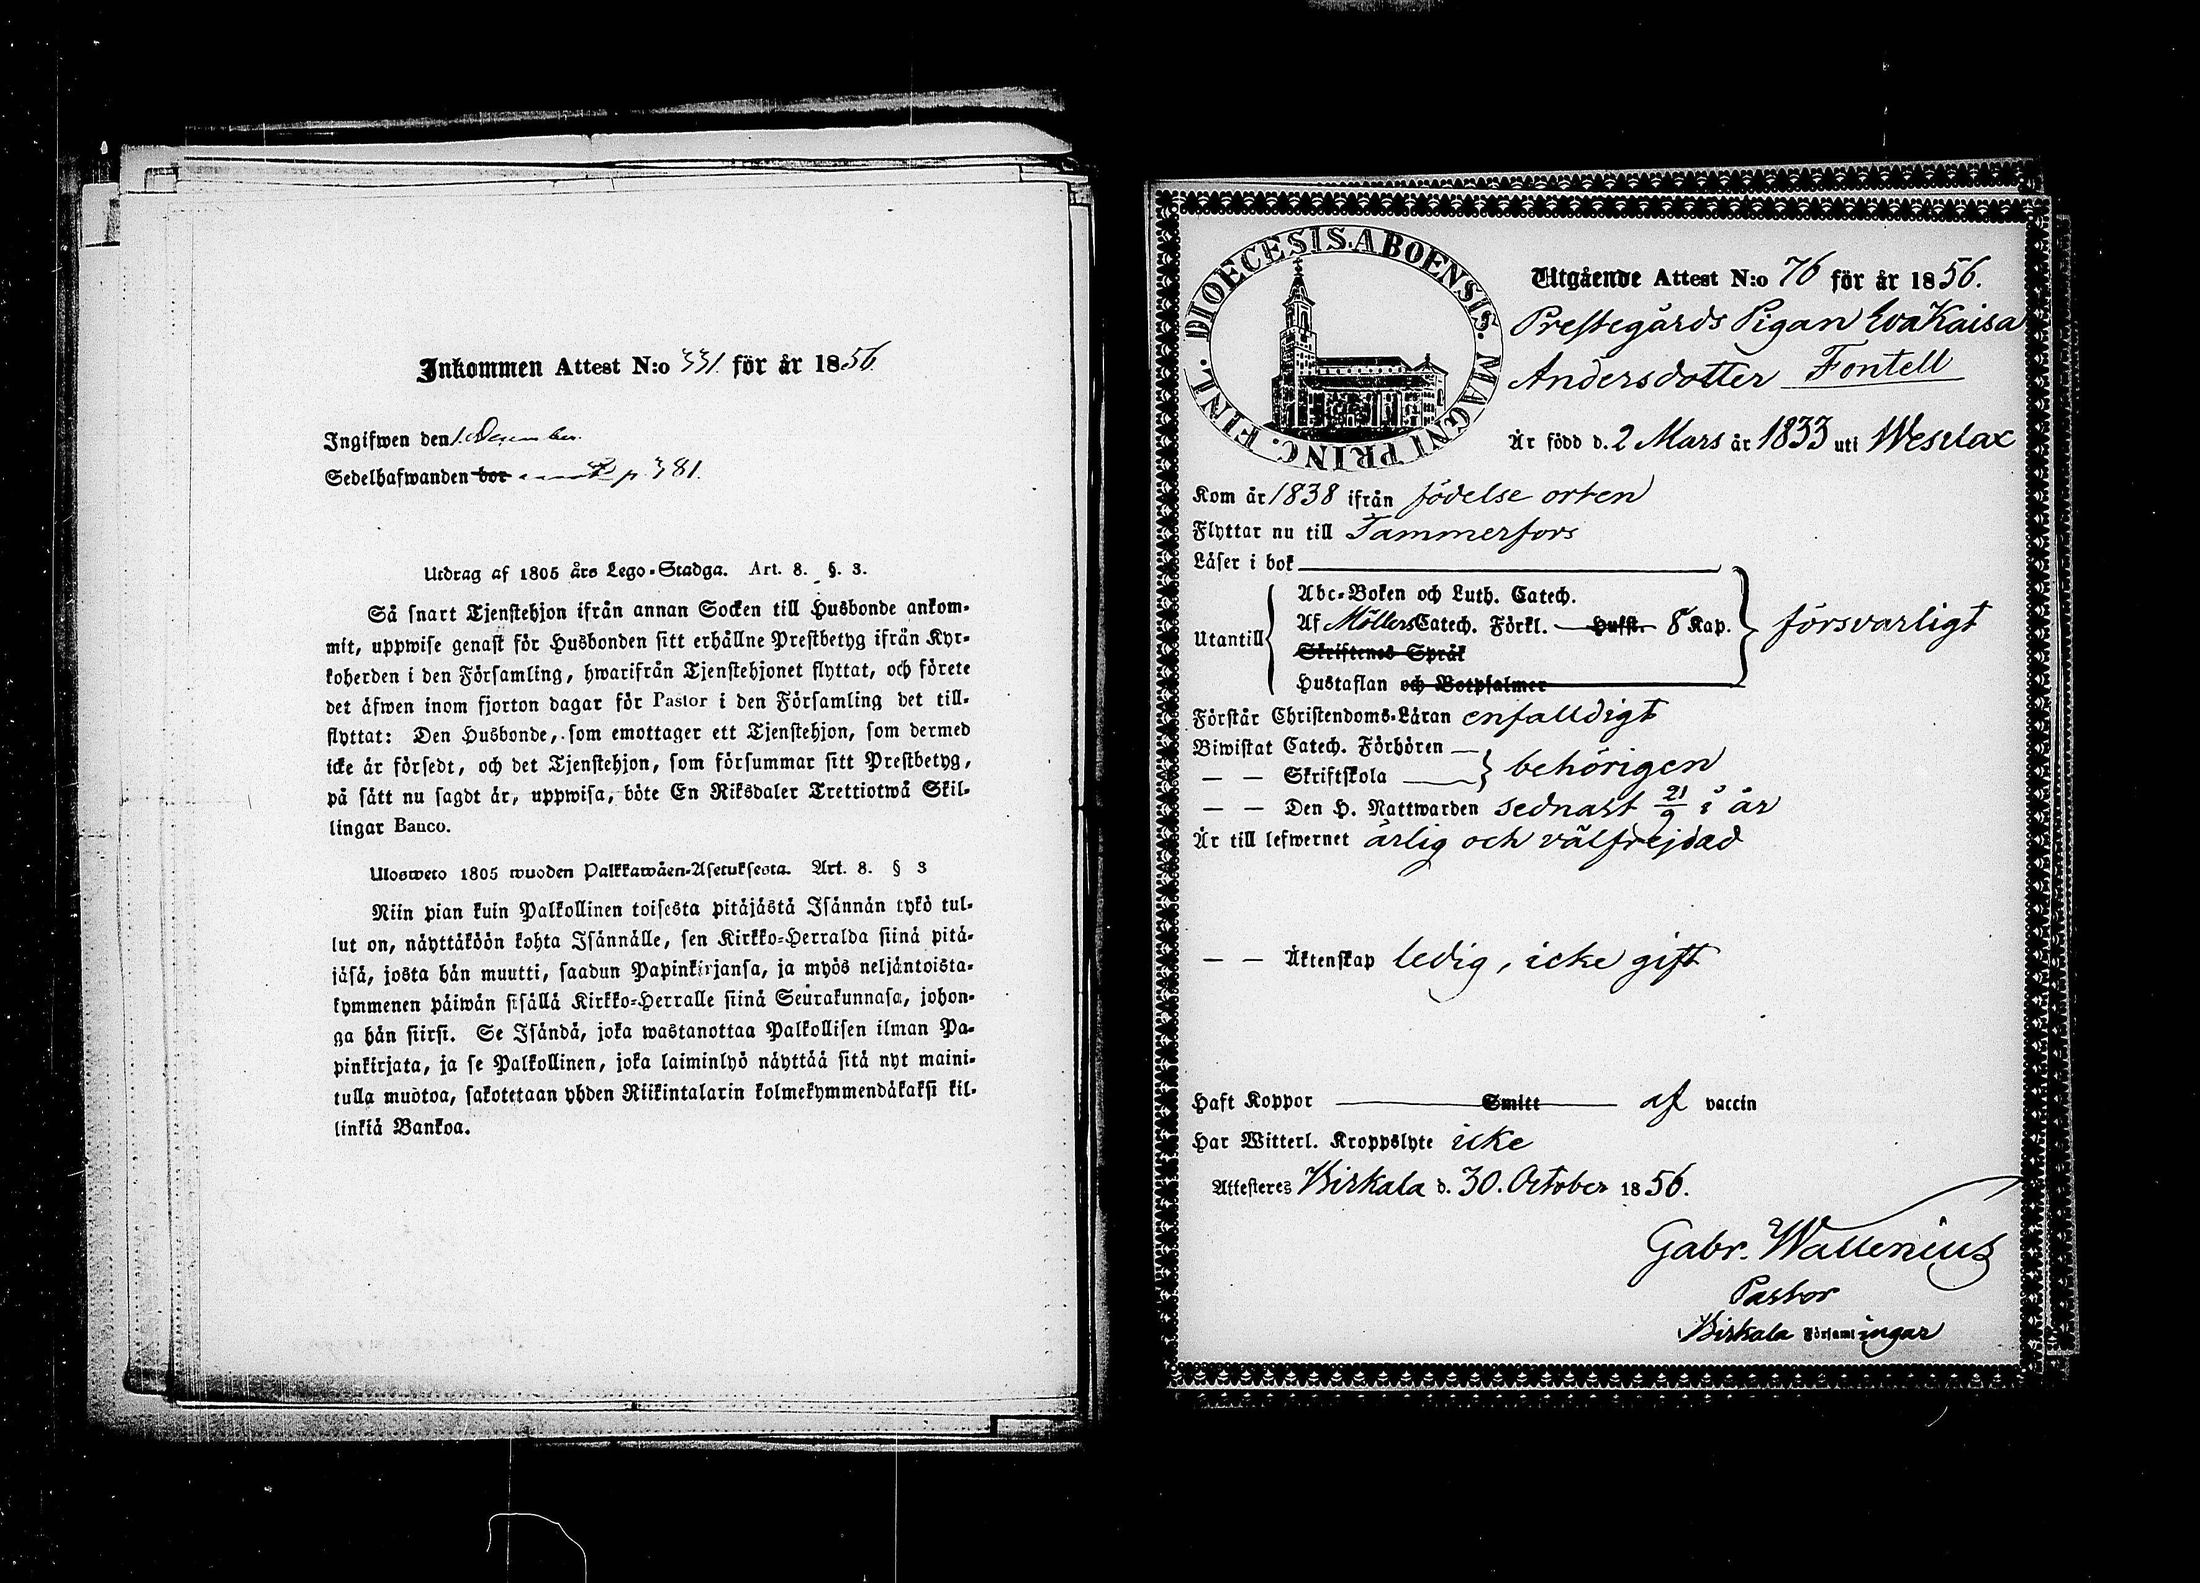 Inkommen Attest N:o 331. för år 1856.
Ingifwen den 1 December.
Sedelhafwanden bor p. 381.
Utdrag af 1805 års Lego-Stadga. Art. 8. §. 3.
Så snart Tjenstehjon ifrån annan Socken till Husbonde ankom-
mit, uppwise genast för Husbonden sitt erhållne Prestbetyg ifrån Kyr-
koherden i den Församling, hwarifrån Tjenstehjonet flyttat, och förete
det äfwen inom fjorton dagar för Pastor i den Församling det till-
flyttat: Den Husbonde, som emottager ett Tjenstehjon, som dermed
icke är försedt, och det Tjenstehjon, som försummar sitt Prestbetyg,
på sätt nu sagdt är, uppwisa, böte En Riksdaler Trettiotwå Skil-
lingar Banco.
Ulosweto 1805 wuoden Palkkawäen-Asetuksesta. Art. 8. § 3
Niin pian kuin Palkollinen toisesta pitäjästä Isännän tykö tul-
lut on, näyttäköön kohta Isännälle, sen Kirkko-Herralda siinä pitä-
jäsä, josta hän muutti, saadun Papinkirjansa, ja myös neljäntoista-
kymmenen päiwän sisällä Kirkko-Herralle siinä Seurakunnasa, johon-
ga hän siirsi. Se Isändä, joka wastanottaa Palkollisen ilman Pa-
pinkirjata, ja se Palkollinen, joka laiminlyö näyttää sitä nyt maini-
tulla muotoa, sakotetaan yhden Riikintalarin kolmekymmendäkaksi kil-
linkiä Bankoa.
FINL. DIOECESIS. ABOENSIS. MAGNI PRINC.
Utgående Attest N:o 76 för år 1856.
Prestegårds Pigan Eva Kaisa
Andersdotter Fontell
Är född d. 2 Mars år 1833 uti Westlax
Kom år 1838 ifrån födelse orten
Flyttar nu till Tammerfors
Läser i bok
Abc-Boken och Luth. Catech.
Utantill Af Möllers Catech. Förkl. Hufst. 8 Kap. försvarligt
Skriftenes Språk
Hustaflan och Botpsalmer
Förstår Christendoms-Läran enfalldigt
Biwistat Catech. Förhören —
— — Skriftskola — behörigen
— — Den H. Nattwarden sednast 21/9 i år
Är till lefwernet ärlig och välfrejdad
— — Äktenskap ledig, icke gift
Haft Koppor Smitt af vaccin
Har Witterl. Kroppslyte icke
Attesteres Birkala d. 30. October 1856.
Gabr. Wallenius
Pastor
Birkala Församlingar